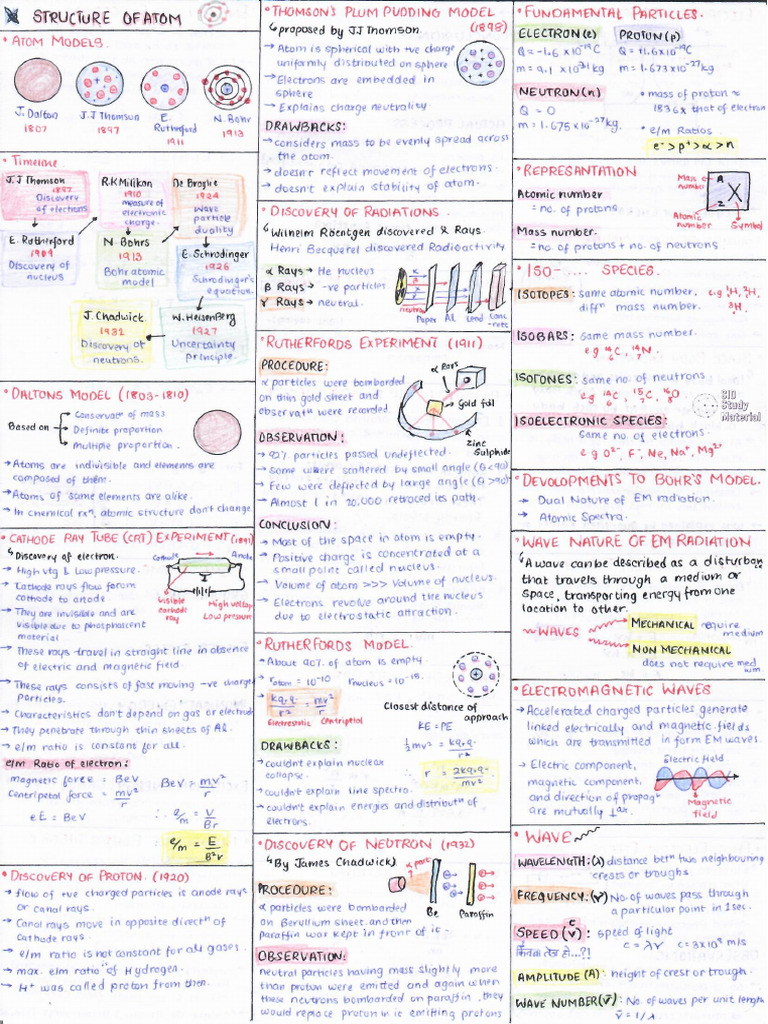 STRUCTURE OF ATOM
• ATOM MODELS.
J. Dalton
1807
J.J Thomson
1897
E.
Rutherford
1911
N. Bohr
1913
• Timeline
J.J Thomson
1897
Discovery
of electrons.
R.K Milikan
1910
measure of
electronic
charge.
De Broglie
1924
Wave
particle
duality
E. Rutherford
1909
Discovery of
nucleus
N. Bohrs
1913
Bohr atomic
model
E. Schrodinger
1926
Schrodinger's
equation.
J. Chadwick.
1931
Discovery of
neutrons.
W. HeisenBerg
1927
Uncertainty
principle.
• DALTONS MODEL (1803-1810)
Based on
Conservatⁿ of mass
Definite proportion
Multiple proportion.
→ Atoms are indivisible and elements are
composed of them.
→ Atoms of same elements are alike.
→ In chemical rxⁿ, atomic structure don't change.
• CATHODE RAY TUBE (CRT) EXPERIMENT (1891)
Discovery of electron.
→ High vtg & Low pressure.
→ Cathode rays flow forom
cathode to anode
→ They are invisible and are
visible due to phosphoscent
material
Cathode
Anode
Visible
cathode
ray
High voltage
Low pressure
→ These rays travel in straight line in absence
of electric and magnetic field.
→ These rays consists of fast moving -ve charge
particles.
→ Characteristics don't depend on gas or electrode
→ They penetrate through thin sheets of Al.
→ e/m ratio is constant for all.
e/m Ratio of electron:
magnetic force = Bev
Centripetal force = mv²/r
eE = BeV
BeV = mv²/r
∴ e/m = V/Br
e/m = E/B²r
• DISCOVERY OF PROTON. (1920)
→ flow of +ve charged particles is anode rays
or canal rays.
→ Canal rays move in opposite directⁿ of
cathode rays.
→ e/m ratio is not constant for all gases.
→ max. e/m ratio of Hydrogen.
→ H⁺ was called proton from then.
• THOMSON'S PLUM PUDDING MODEL
(1898)
proposed by JJ Thomson.
→ Atom is spherical with +ve charge
uniformly distributed on sphere
→ Electrons are embedded in
sphere
→ Explains charge neutrality
DRAWBACKS:
→ considers mass to be evenly spread across
the atom.
→ doesn't reflect movement of electrons.
→ doesn't explain stability of atom.
• DISCOVERY OF RADIATIONS.
Wilhelm Röentgen discovered X Rays.
Henri Becquerel discovered Radioactivity
α Rays → He nucleus
β Rays → -ve particles.
γ Rays → neutral.
neutral
Paper Al Lead Conc-
rete
• RUTHERFORDS EXPERIMENT (1911)
PROCEDURE:
α particles were bombarded
on thin gold sheet and
observatⁿ were recorded.
α Rays
Gold foil
Zinc
Sulphide
OBSERVATION:
→ 92% particles passed undeflected.
→ Some where scattered by small angle (θ<90)
→ Few were deflected by large angle (θ>90)
→ Almost 1 in 20,000 retraced its path.
CONCLUSION:
→ Most of the space in atom is empty.
→ Positive charge is concentrated at a
small point called nucleus.
→ Volume of atom >>> Volume of nucleus.
→ Electrons revolve around the nucleus
due to electrostatic attraction.
• RUTHERFORDS MODEL.
→ About 90% of atom is empty.
→ r atom = 10⁻¹⁰ r nucleus = 10⁻¹⁵.
→ kq₁q₂/r² = mv²/r
Electrostatic Centriptal
Closest distance of
approach
KE = PE
½mv² = kq₁q₂/r
∴ r = 2kq₁q₂/mv²
DRAWBACKS:
→ couldn't explain nuclear
collapse.
→ couldn't explain line spectra.
→ couldn't explain energies and distributⁿ of
electrons.
• DISCOVERY OF NEUTRON (1932)
By James Chadwick)
PROCEDURE:
α particles were bombarded
on Beryllium sheet, and then
paraffin wax kept in front of it.
α part
?
Be Paraffin
OBSERVATION:
neutral particles having mass slightly more
than proton were emitted and again when
these neutrons bombarded on paraffin, they
would replace proton in it emitting protons
• FUNDAMENTAL PARTICLES.
ELECTRON(e) PROTON(p)
Q = -1.6 × 10⁻¹⁹C Q = +1.6 × 10⁻¹⁹C
m = 9.1 × 10⁻³¹kg m = 1.673 × 10⁻²⁷kg
NEUTRON(n)
Q = 0
m = 1.675 × 10⁻²⁷kg.
• mass of proton ≈
1836 × that of electron
• e/m Ratios
e⁻ > p⁺ > α > n
• REPRESANTATION
Atomic number
= no. of protons
Mass number.
= no. of protons + no. of neutrons.
Mass
number
A
X
Z
Atomic
number
Symbol
• ISO-.... SPECIES.
ISOTOPES: same atomic number,
diffⁿ mass number.
e.g ¹H, ²H,
³H.
ISOBARS: same mass number.
e.g ¹⁴₆C, ¹⁴₇N.
ISOTONES: same no. of neutrons
e.g ¹⁴₆C, ¹⁵₇C, ¹⁶₈O
SID
Study
Material
ISOELECTRONIC SPECIES:
Same no. of electrons.
e.g O²⁻, F⁻, Ne, Na⁺, Mg²⁺
• DEVOLOPMENTS TO BOHR'S MODEL.
→ Dual Nature of EM radiation.
→ Atomic Spectra.
• WAVE NATURE OF EM RADIATION
A wave can be described as a disturban
that travels through a medium or
space, transporting energy from one
location to other.
WAVES
MECHANICAL require
medium
NON MECHANICAL
does not require med
ium.
• ELECTROMAGNETIC WAVES
→ Accelerated charged particles generate
linked electrically and magnetic fields
which are transmitted in form EM waves.
→ Electric component,
magnetic component,
and direction of propagⁿ
are mutually ⊥ᵃʳ.
Electric Field
Magnetic
field
• WAVE
WAVELENGTH: (λ) distance betⁿ two neighbouring
crests or troughs
FREQUENCY: (ν) No. of waves pass through
a particular point in 1sec.
SPEED (c/v) : speed of light
c = λν c = 3×10⁸ m/s
AMPLITUDE (A): height of crest or trough.
WAVE NUMBER (ν̄): No. of waves per unit length
ν̄ = 1/λ